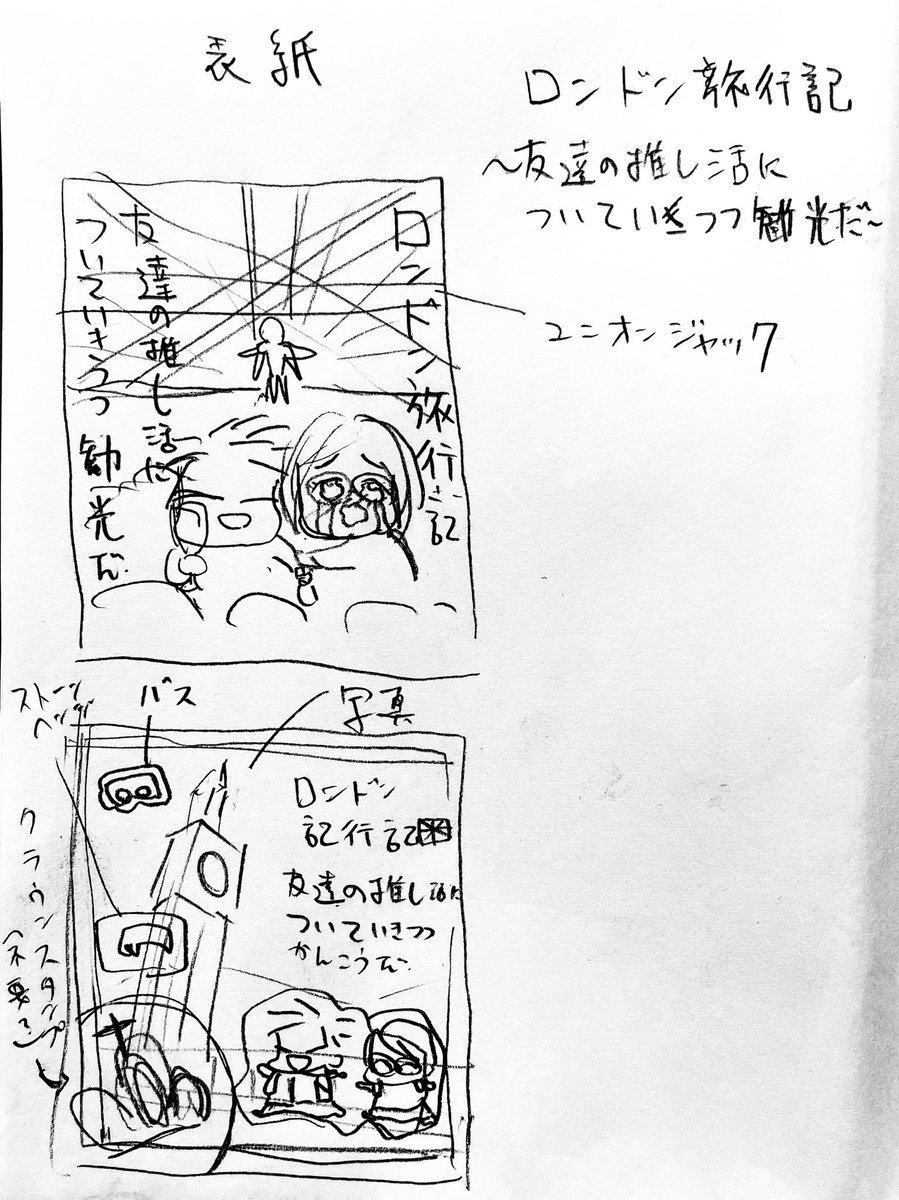 表紙
ロンドン旅行記
～友達の推し活に
ついていきつつ観光だ～
ロンドン旅行記
友達の推し活に
ついていきつつ観光だ
ユニオンジャック
ストーンヘンジ
バス
写真
ロンドン
記行記
友達の推し活に
ついていきつつ
かんこうだ
クラウンスタンプ